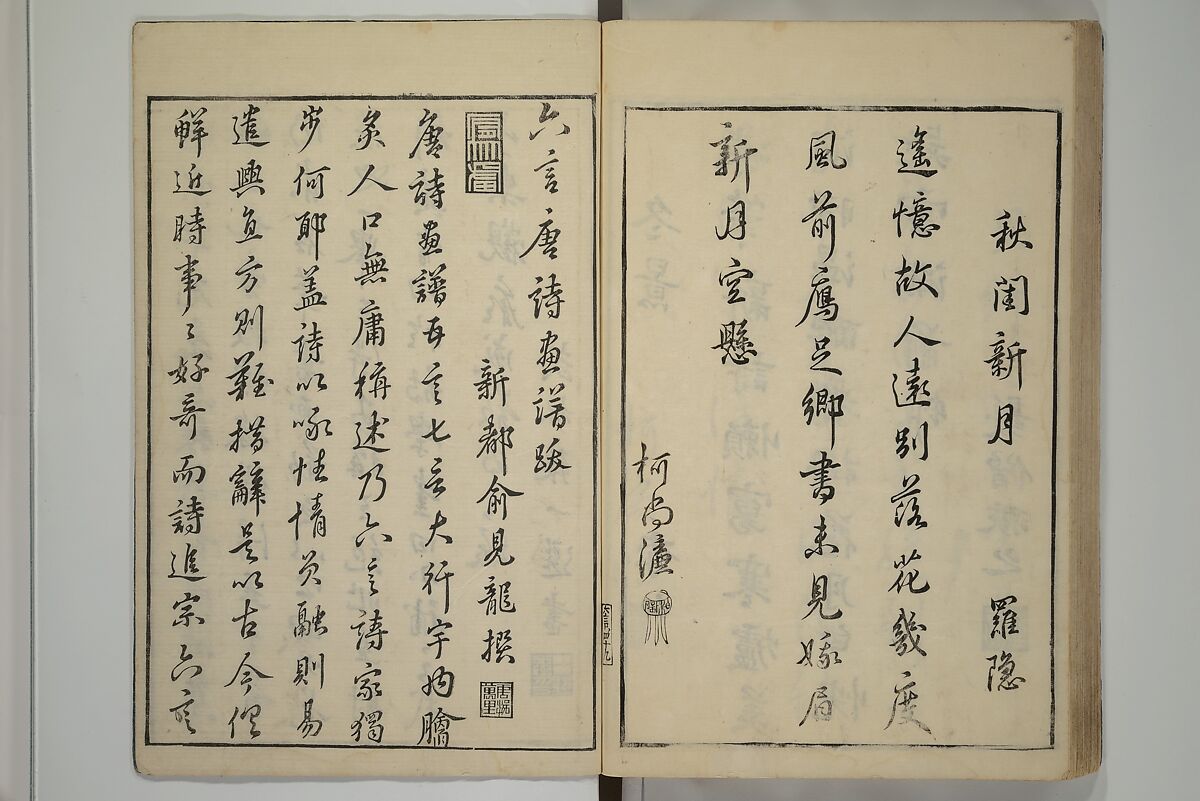 秋閨新月 羅隐
遙憶故人遠別落花幾度
風前鴈足鄉書未見娥眉
新月空懸
柯尚濂
六言唐詩畫譜跋
新都俞見龍撰
唐詩畫譜五言七言大行宇內膾
炙人口無庸稱述乃六言詩家獨
步何耶盖詩以咏性情員融則易
遣興直方則難措辭是以古今僅
鮮近時事〻好奇而詩進宗六言